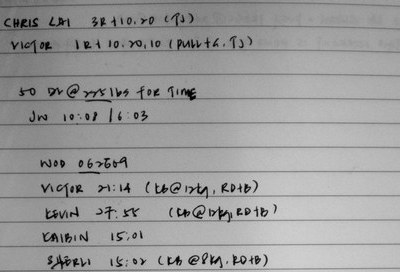 CHRIS LAI 3R+10.20 (TJ)
VICTOR 1R+10.20,10 (PULL+G, TJ)
50 DL @ 225 lbs FOR TIME
JW 10:08 / 6:03
WOD 062609
VICTOR 21:14 (KB@12kg, RD+B)
KEVIN 27:55 (KB@12kg, RD+B)
KAIBIN 15:01
SHERLI 15:02 (KB @8kg, RD+B)